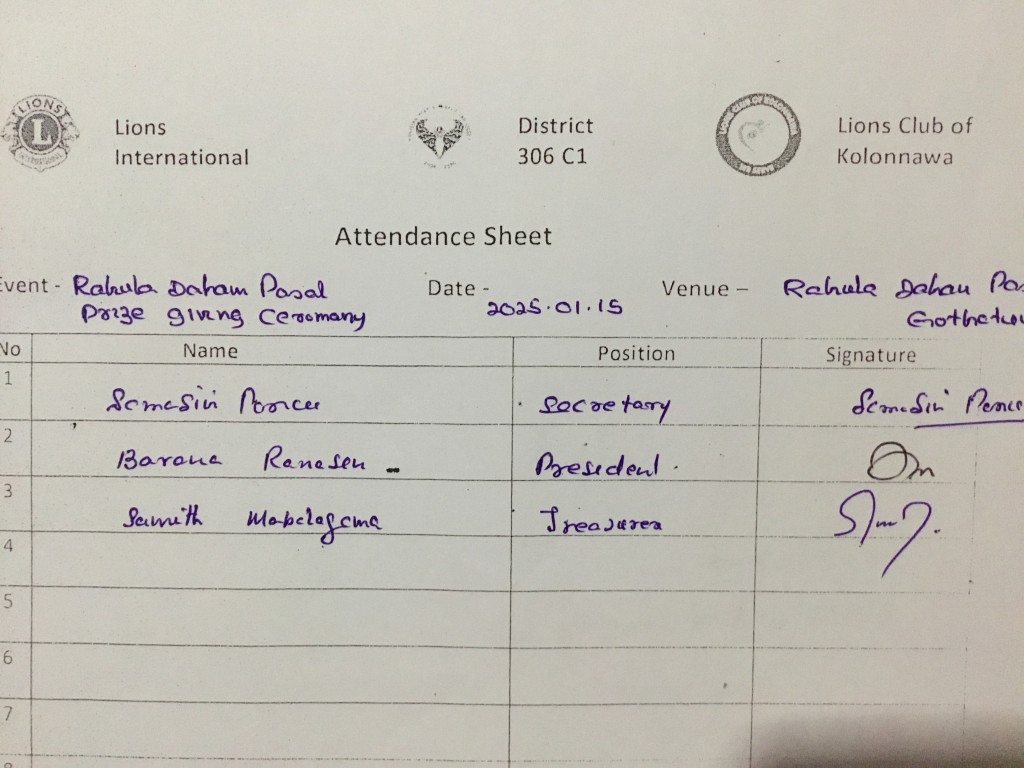 LIONS
L
INTERNATIONAL
Lions
International
District
306 C1
Lions Club of
Kolonnawa
Attendance Sheet
Event - Rahula Daham Pasal
Prize giving Ceromany
Date -
2025.01.15
Venue – Rahula Dahau Pas
Gothatuw
No Name Position Signature
1 Somasiri Secretary Somasiri
2 Barana Ranasen President.
3 Sumith Mabelagama Treasurer
4
5
6
7
8